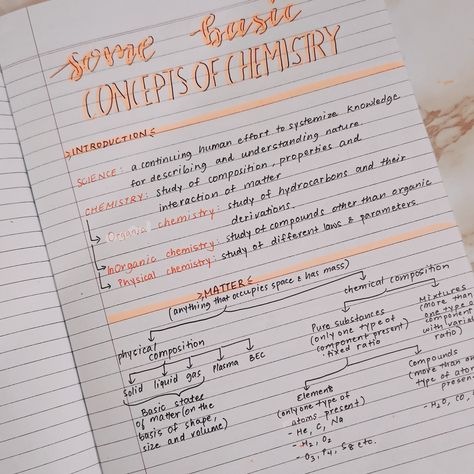 some basic
CONCEPTS OF CHEMISTRY
INTRODUCTION
SCIENCE: a continuing human effort to systemize knowledge
for describing and understanding nature.
CHEMISTRY: study of composition, properties and
interaction of matter
Organic chemistry: study of hydrocarbons and their
derivations.
InOrganic chemistry: study of compounds other than organic
Physical chemistry: study of different laws & parameters
MATTER
(anything that occupies space & has mass)
physical composition
solid liquid gas Plasma BEC
Basic states
of matter (on the
basis of shape,
size and volume)
chemical composition
Pure substances
(only one type of
component present)
fixed ratio
Mixtures
(more than
one type of
component
with varia
ratio)
Element
(only one type of
atoms present)
- He, C, Na
- H2, O2
- O3, P4, S8 etc.
Compounds
(more than on
type of ato
presen
- H2O, CO,